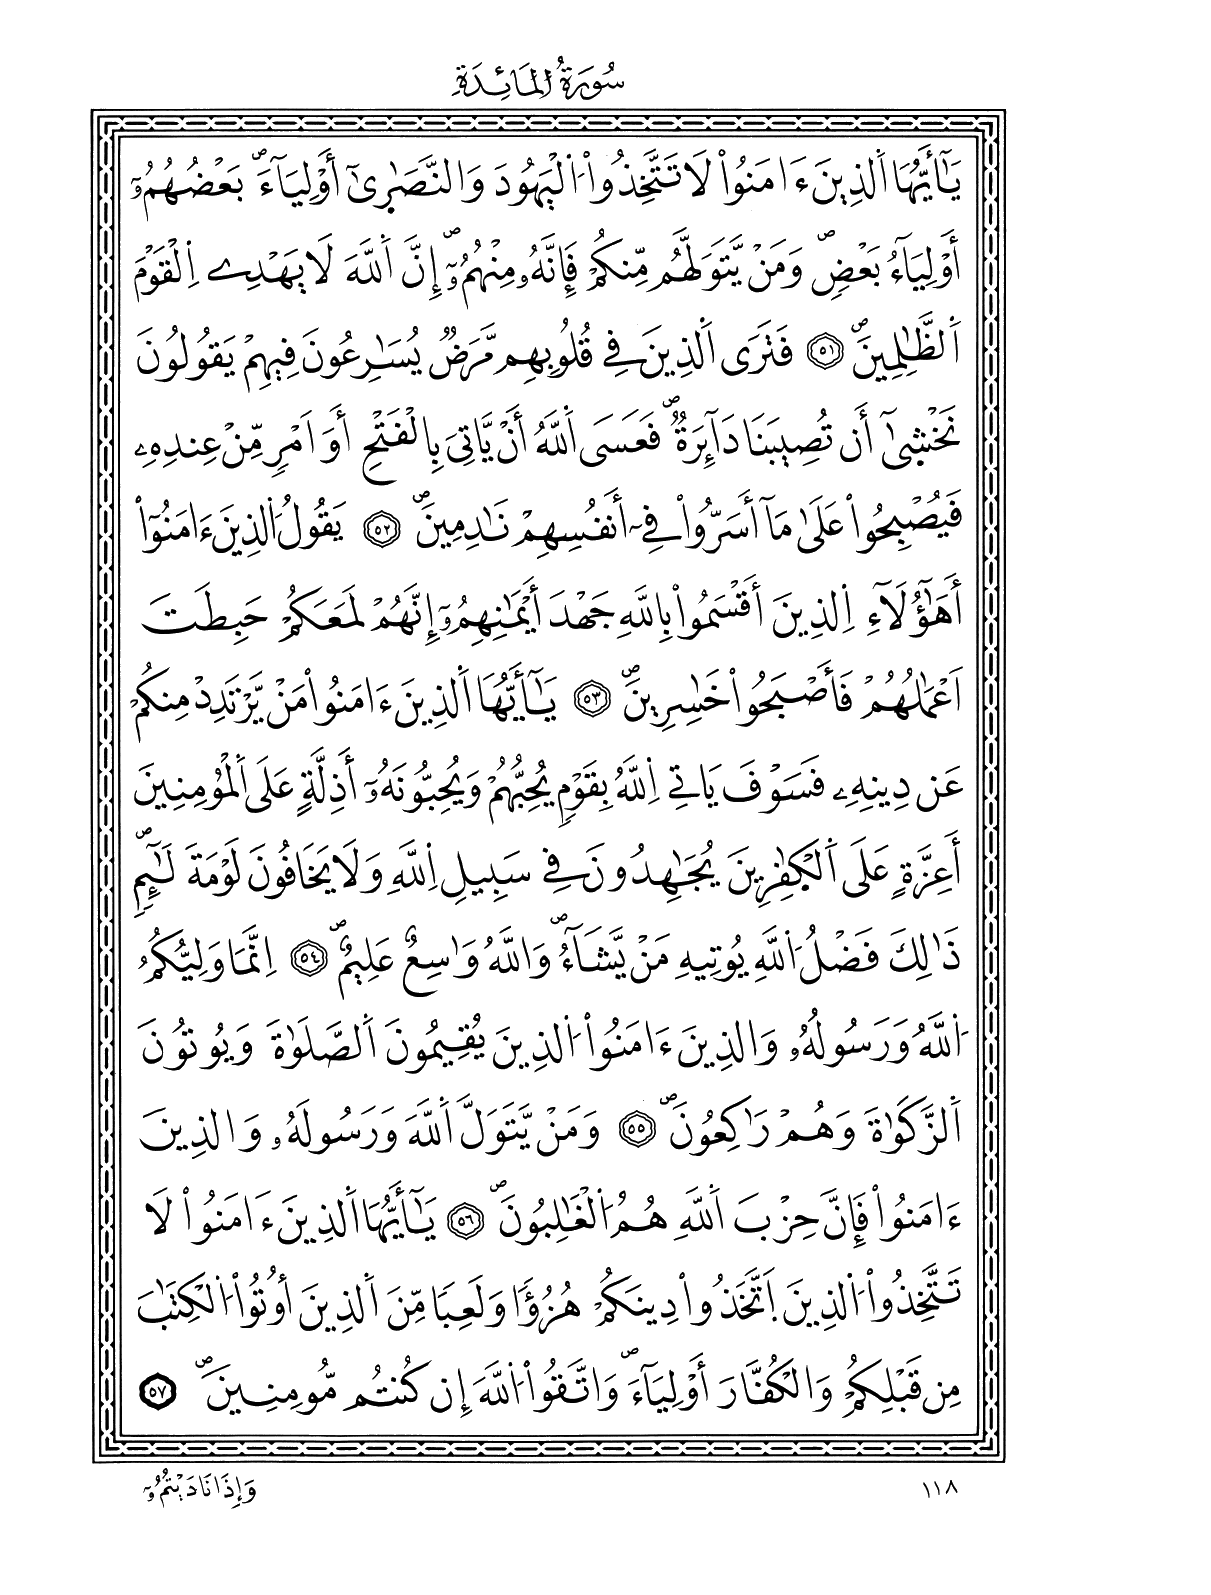 سُورَةُ الْمَائِدَةِ
يَٰٓأَيُّهَا اَ۬لذِينَ ءَامَنُواْ لَا تَتَّخِذُواْ اُ۬لْيَهُودَ وَالنَّصَٰر۪ىٰٓ أَوْلِيَآءَۖ بَعْضُهُمُۥٓ
أَوْلِيَآءُ بَعْضٖۖ وَمَنْ يَّتَوَلَّهُم مِّنكُمْ فَإِنَّهُۥ مِنْهُمُۥٓۖ إِنَّ اَ۬للَّهَ لَا يَهْدِے اِ۬لْقَوْمَ
اَ۬لظَّٰلِمِينَۖ ٥١ فَتَرَى اَ۬لذِينَ فِے قُلُوبِهِم مَّرَضٞ يُسَٰرِعُونَ فِيهِمْ يَقُولُونَ
نَخْش۪ىٰٓ أَن تُصِيبَنَا دَآئِرَةٞۖ فَعَسَى اَ۬للَّهُ أَنْ يَّاتِيَ بِالْفَتْحِ أَوَ اَمْرٖ مِّنْ عِندِهِۦ
فَيُصْبِحُواْ عَلَىٰ مَآ أَسَرُّواْ فِےٓ أَنفُسِهِمْ نَٰدِمِينَۖ ٥٢ يَقُولُ اُ۬لذِينَ ءَامَنُوٓاْ
أَهَٰٓؤُلَآءِ اِ۬لذِينَ أَقْسَمُواْ بِاللَّهِ جَهْدَ أَيْمَٰنِهِمُۥٓ إِنَّهُمْ لَمَعَكُمْ حَبِطَتَ
اَعْمَٰلُهُمْ فَأَصْبَحُواْ خَٰسِرِينَۖ ٥٣ يَٰٓأَيُّهَا اَ۬لذِينَ ءَامَنُواْ مَنْ يَّرْتَدِدْ مِنكُمْ
عَن دِينِهِۦ فَسَوْفَ يَاتِے اِ۬للَّهُ بِقَوْمٖ يُحِبُّهُمْ وَيُحِبُّونَهُۥٓ أَذِلَّةٍ عَلَى اَ۬لْمُومِنِينَ
أَعِزَّةٍ عَلَى اَ۬لْكٰ۪فِرِينَ يُجَٰهِدُونَ فِے سَبِيلِ اِ۬للَّهِ وَلَا يَخَافُونَ لَوْمَةَ لَآئِمٖۖ
ذَٰلِكَ فَضْلُ اُ۬للَّهِ يُوتِيهِ مَنْ يَّشَآءُۖ وَاللَّهُ وَٰسِعٌ عَلِيمٌۖ ٥٤ اِنَّمَا وَلِيُّكُمُ
اُ۬للَّهُ وَرَسُولُهُۥ وَالذِينَ ءَامَنُواْ اُ۬لذِينَ يُقِيمُونَ اَ۬لصَّلَوٰةَ وَيُوتُونَ
اَ۬لزَّكَوٰةَ وَهُمْ رَٰكِعُونَۖ ٥٥ وَمَنْ يَّتَوَلَّ اَ۬للَّهَ وَرَسُولَهُۥ وَالذِينَ
ءَامَنُواْ فَإِنَّ حِزْبَ اَ۬للَّهِ هُمُ اُ۬لْغَٰلِبُونَۖ ٥٦ يَٰٓأَيُّهَا اَ۬لذِينَ ءَامَنُواْ لَا
تَتَّخِذُواْ اُ۬لذِينَ اَ۪تَّخَذُواْ دِينَكُمْ هُزُؤٗا وَلَعِبٗا مِّنَ اَ۬لذِينَ أُوتُواْ اُ۬لْكِتَٰبَ
مِن قَبْلِكُمْ وَالْكُفَّارَ أَوْلِيَآءَۖ وَاتَّقُواْ اُ۬للَّهَ إِن كُنتُم مُّومِنِينَۖ ٥٧
وَإِذَا نَادَيْتُمُۥٓ
١١٨